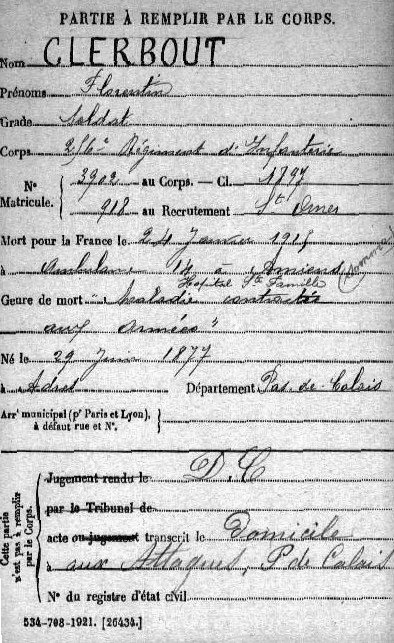 PARTIE À REMPLIR PAR LE CORPS.
Nom CLERBOUT
Prénoms Florentin
Grade Soldat
Corps Régiment d'Infanterie
N° Matricule. 3902 au Corps. — Cl. 1897
918 au Recrutement St Omer
Mort pour la France le 24 Janvier 1915
à Ambulance 14 à Amiens (Somme)
Hopital Ste Famille
Genre de mort "Maladie contractée
aux armées"
Né le 29 Juin 1877
à Département Pas-de-Calais
Arrᵗ municipal (pʳ Paris et Lyon),
à défaut rue et N°.
Cette partie n'est pas à remplir par le Corps.
Jugement rendu le D.C
par le Tribunal de
acte ou jugement transcrit le Domicile
à aux Attaques, P de Calais
N° du registre d'état civil
534-708-1921. [26434.]